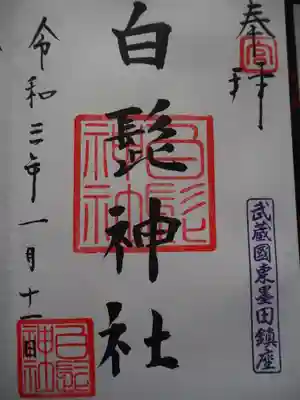 奉拝
武蔵國東墨田鎮座
白髭神社
白髭神社
令和三年一月十一日
白髭神社